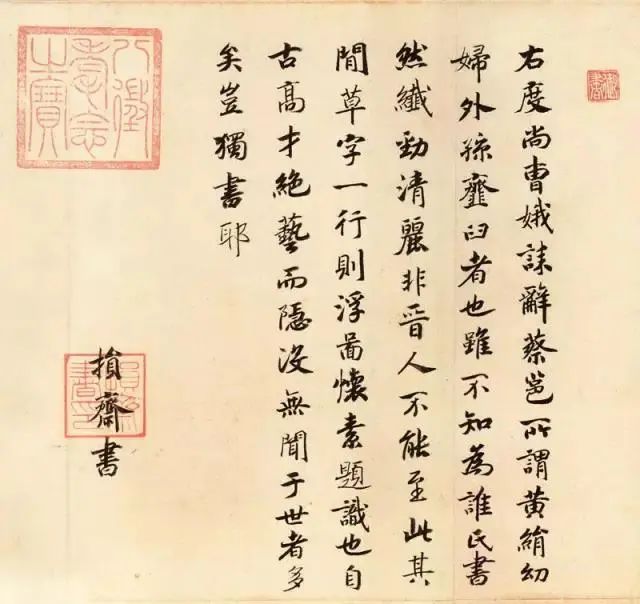 右度尚曹娥誄辭蔡邕所謂黃絹幼
婦外孫虀臼者也雖不知為誰氏書
然纖勁清麗非晉人不能至此其
間草字一行則浮啚懷素題識也自
古高才絕藝而隱沒無聞于世者多
矣豈獨書耶
損齋書
御書
損齋書印